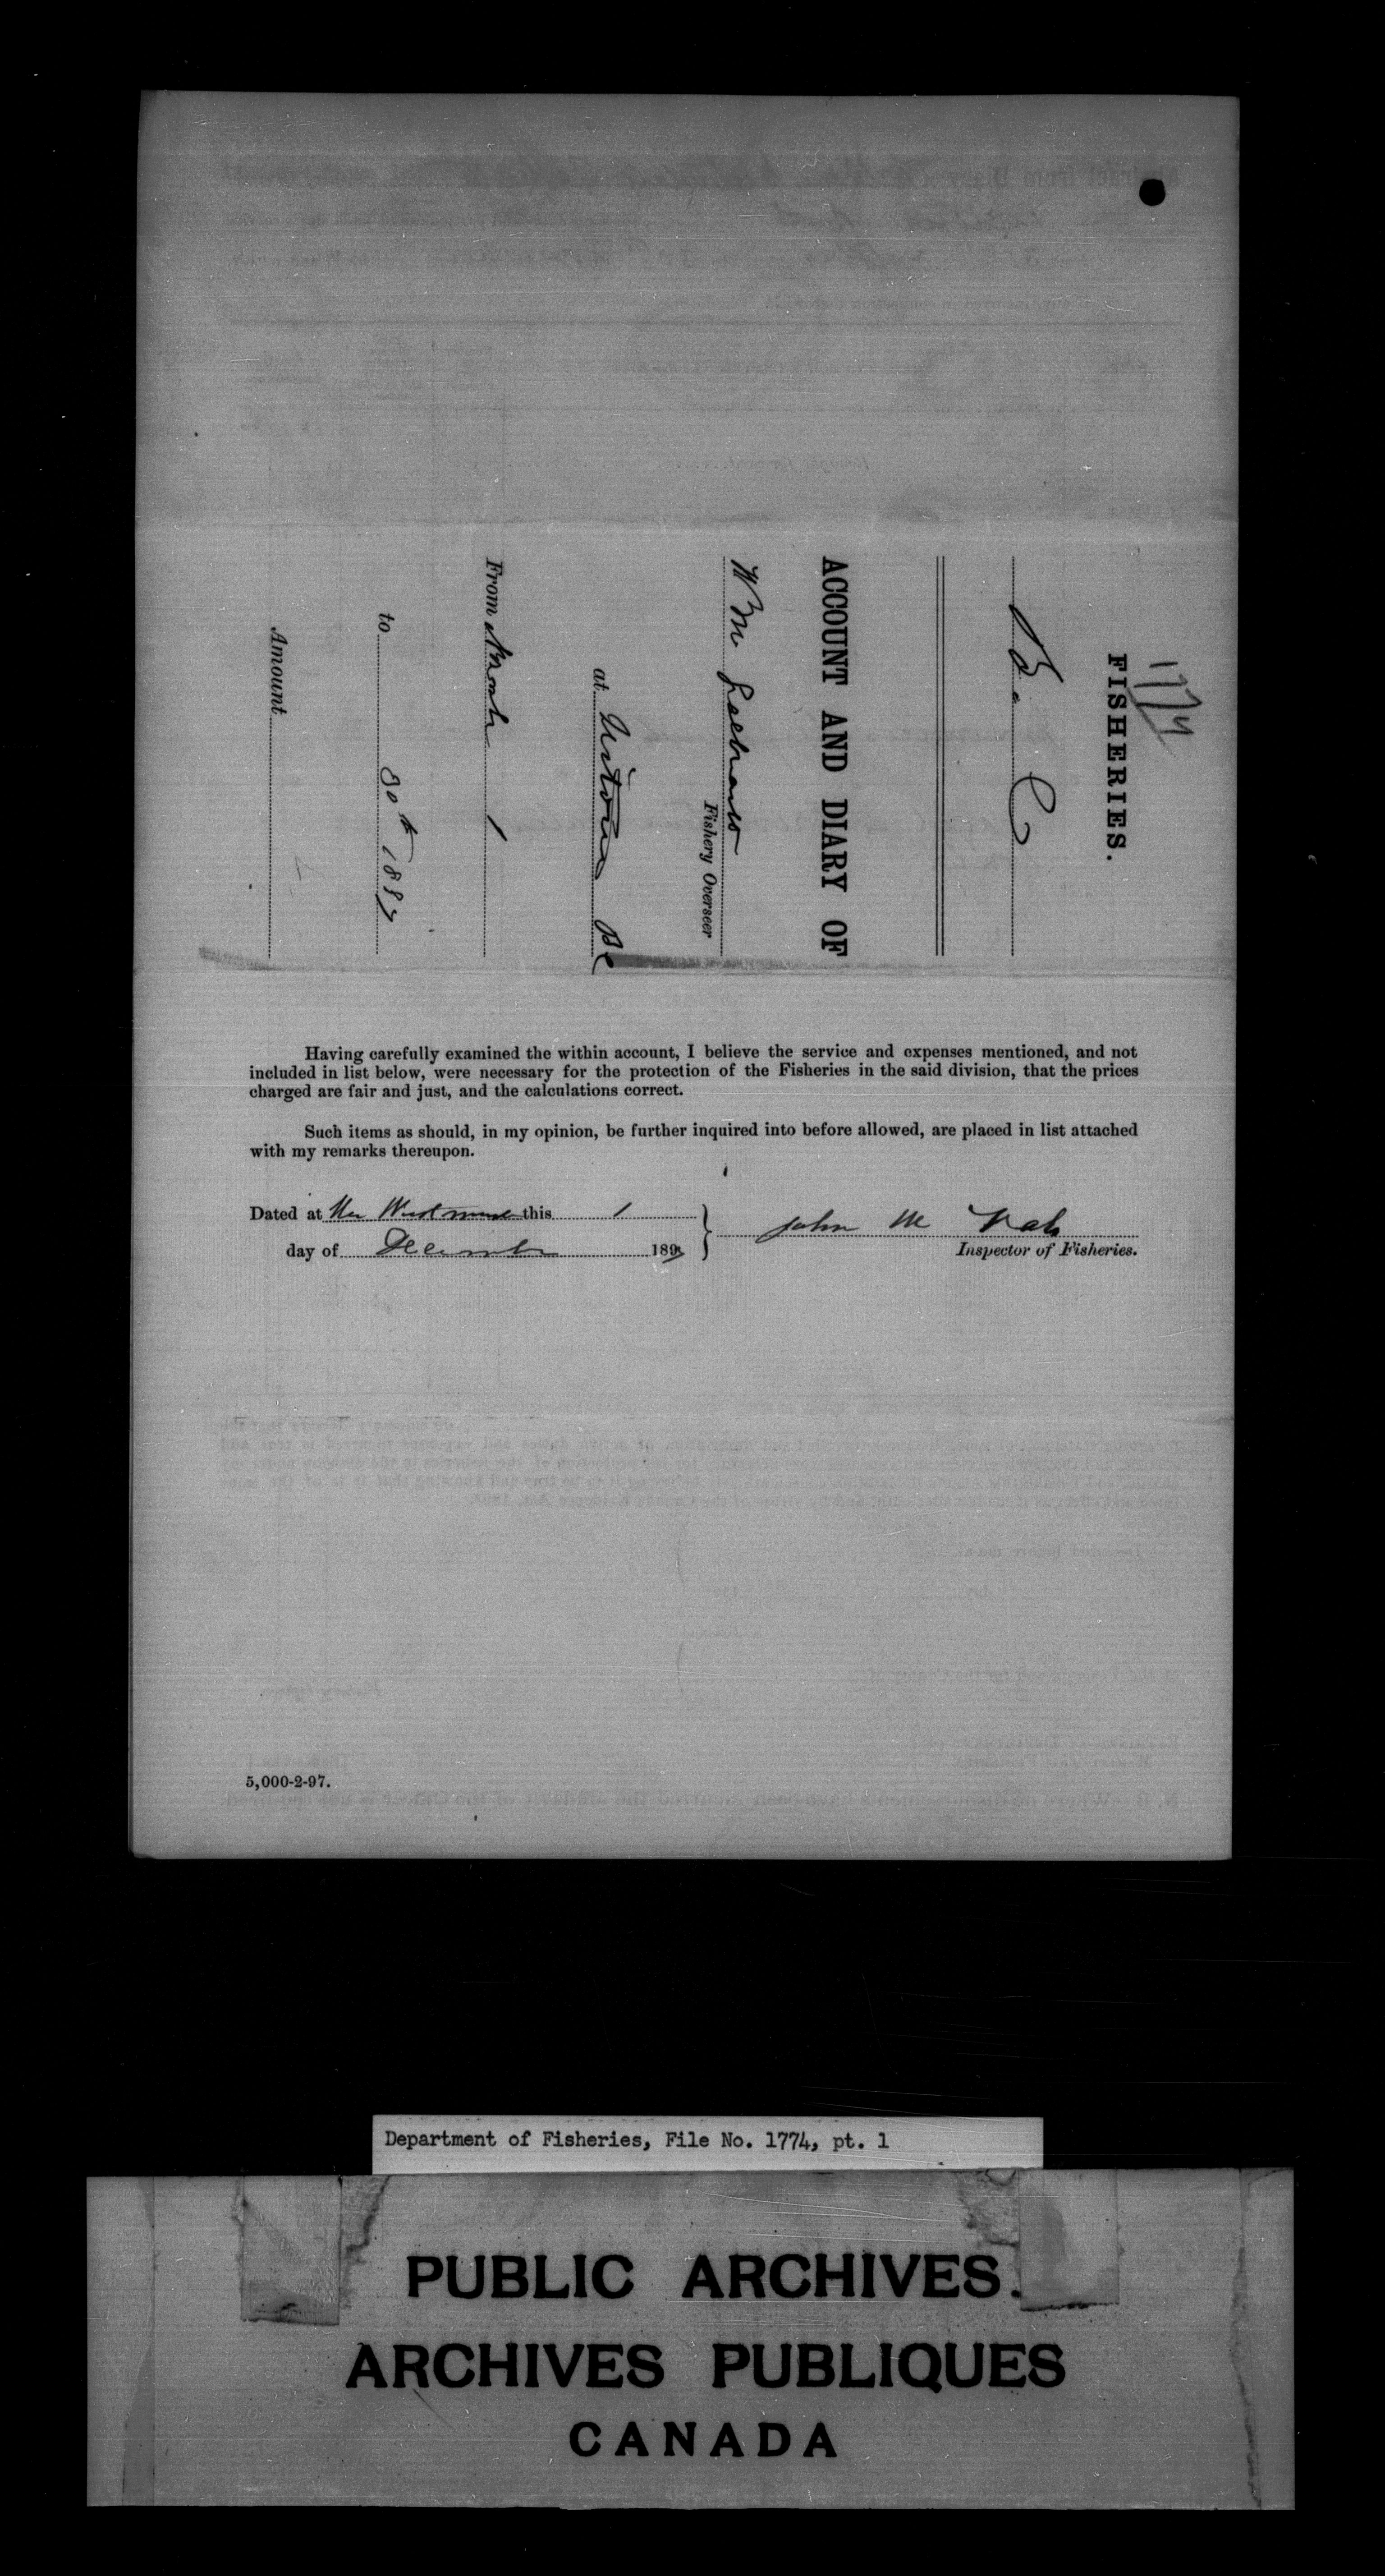 1774
FISHERIES.
B. C
ACCOUNT AND DIARY OF
Wm
Fishery Overseer
at Victoria BC
From 1
to 30th 1897
Amount
Having carefully examined the within account, I believe the service and expenses mentioned, and not
included in list below, were necessary for the protection of the Fisheries in the said division, that the prices
charged are fair and just, and the calculations correct.
Such items as should, in my opinion, be further inquired into before allowed, are placed in list attached
with my remarks thereupon.
Dated at New Westminster this 1
day of December 1897
John Mc Nab
Inspector of Fisheries.
5,000-2-97.
Department of Fisheries, File No. 1774, pt. 1
PUBLIC ARCHIVES.
ARCHIVES PUBLIQUES
CANADA